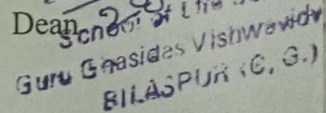 Dean
School of
Guru Ghasidas Vishwavidy
BILASPUR (C.G.)